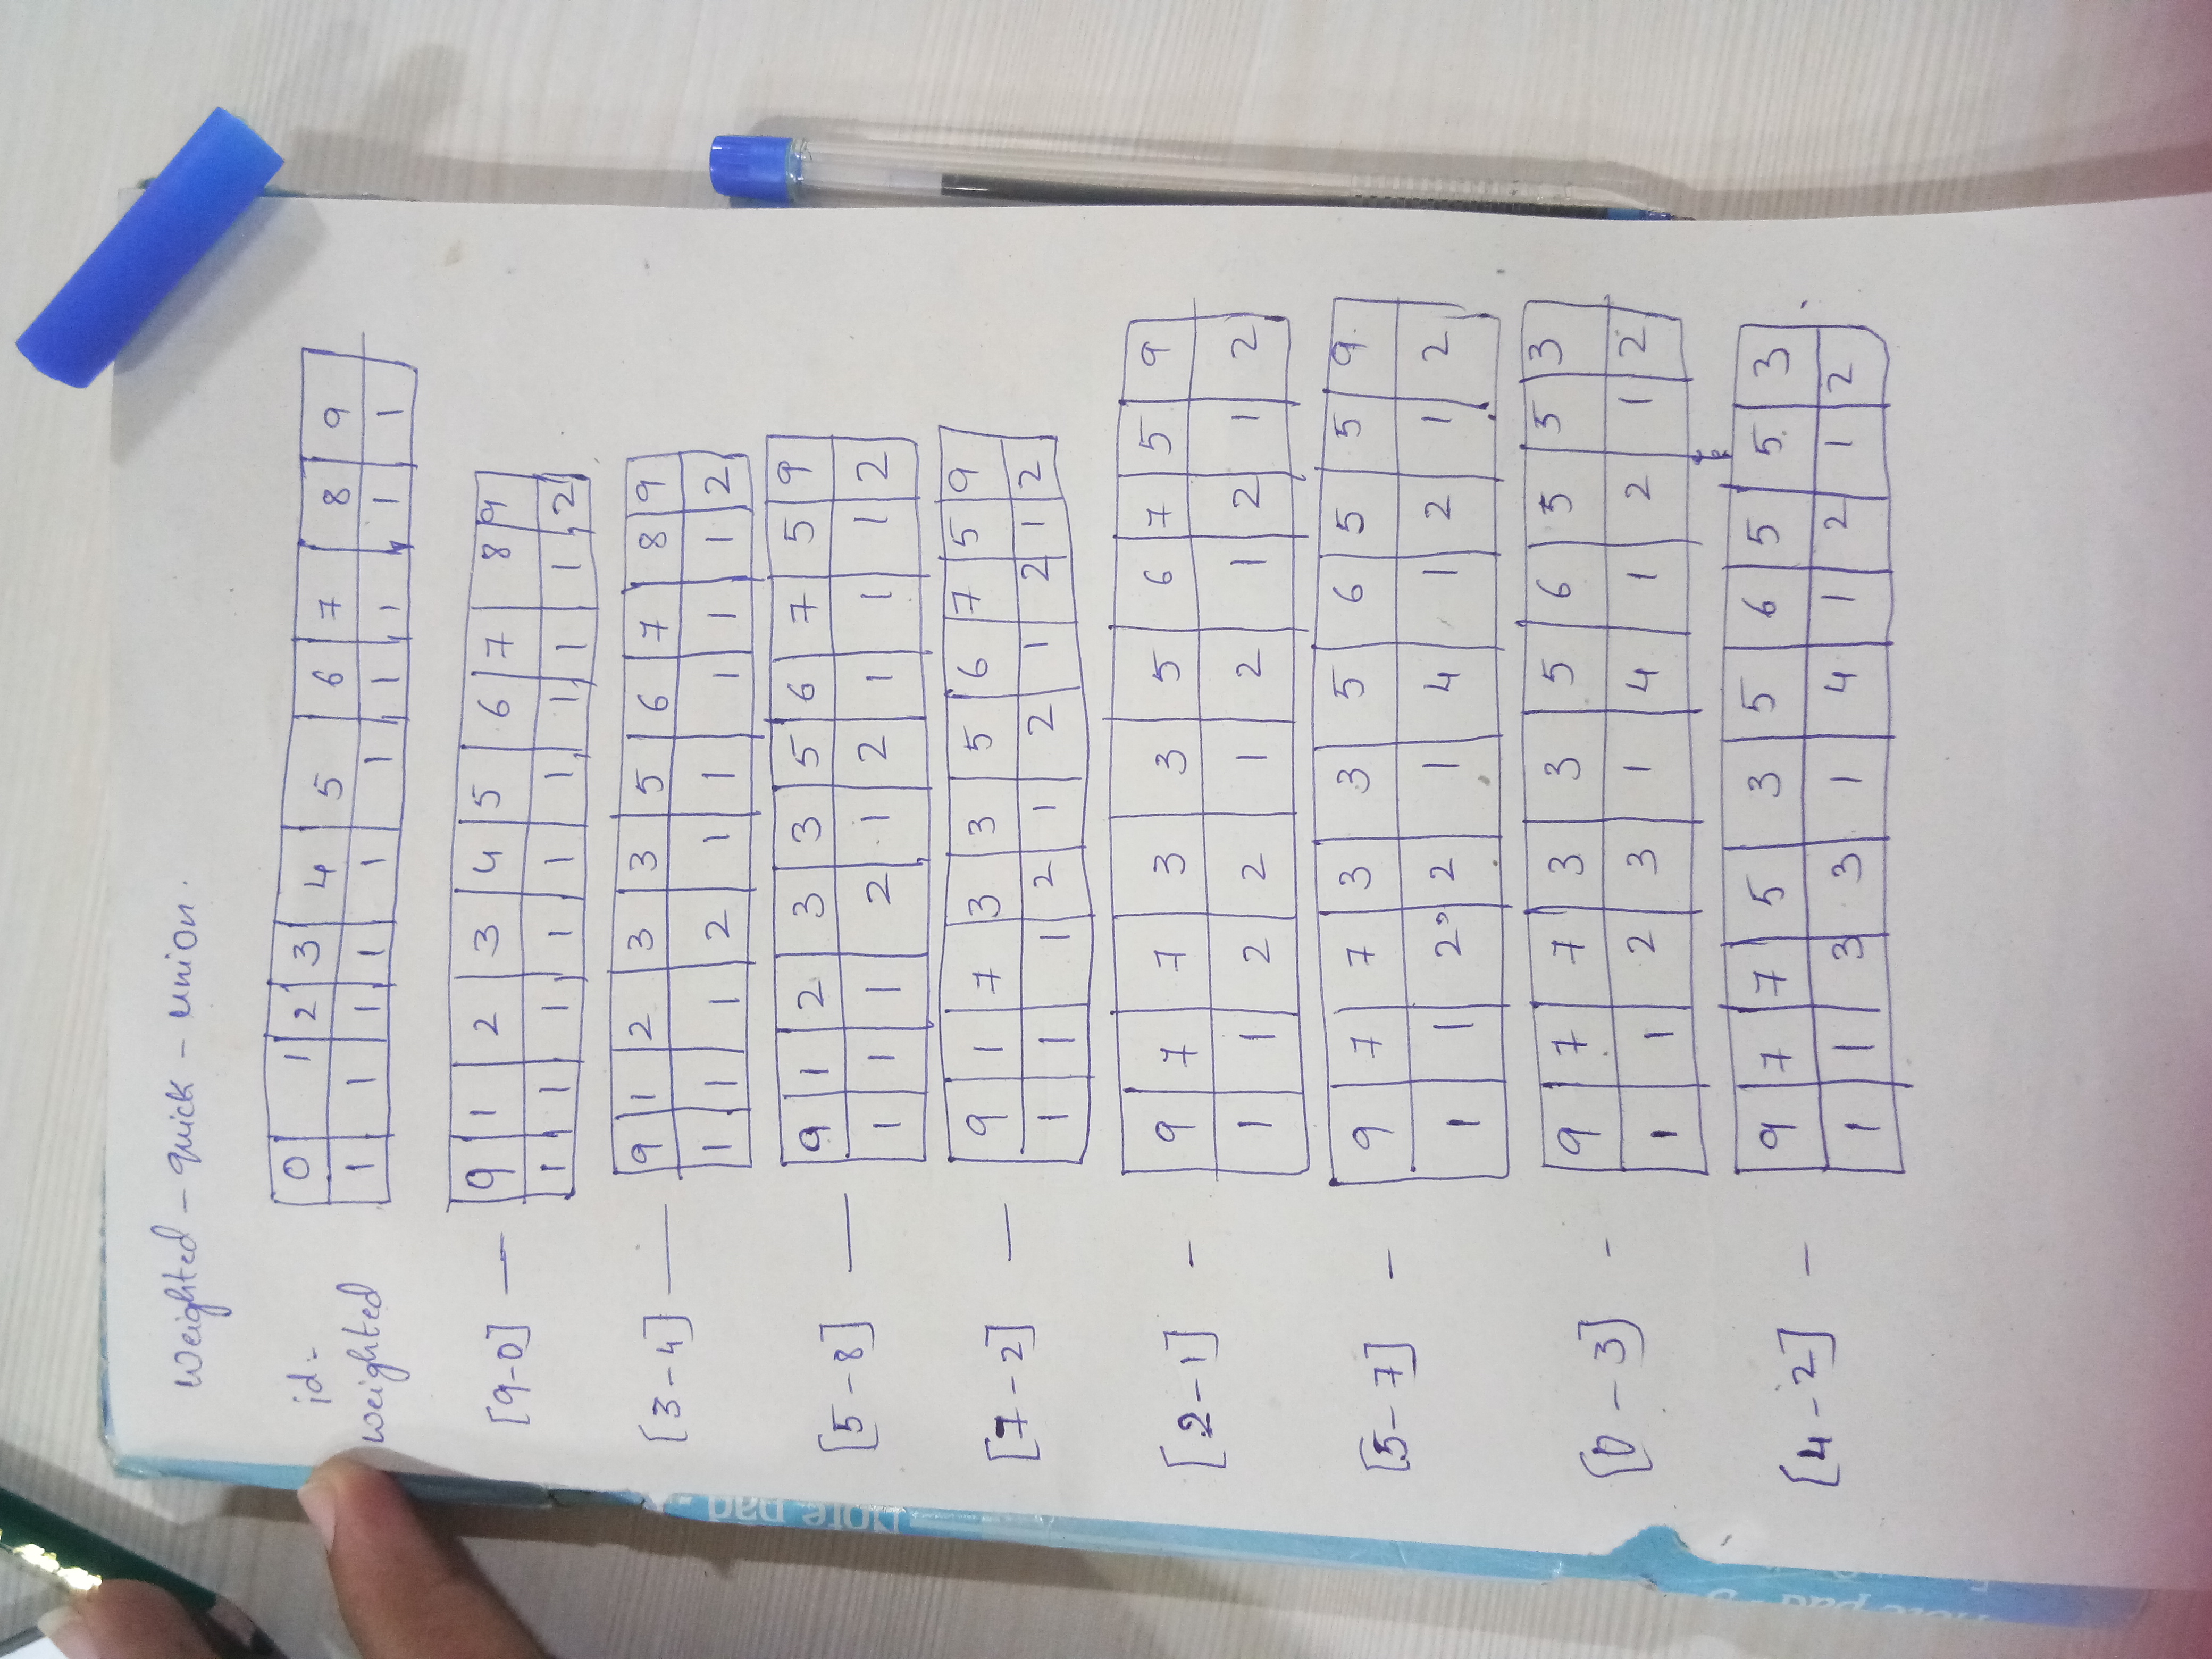 weighted - quick - union.
id:- 0 1 2 3 4 5 6 7 8 9
weighted 1 1 1 1 1 1 1 1 1 1
[9-0] — 9 1 2 3 4 5 6 7 8 9
1 1 1 1 1 1 1 1 1 2
[3-4] — 9 1 2 3 3 5 6 7 8 9
1 1 1 2 1 1 1 1 1 2
[5-8] — 9 1 2 3 3 5 6 7 5 9
1 1 1 2 1 2 1 1 1 2
[7-2] — 9 1 7 3 3 5 6 7 5 9
1 1 1 2 1 2 1 2 1 2
[2-1] - 9 7 7 3 3 5 6 7 5 9
1 1 2 2 1 2 1 2 1 2
[5-7] - 9 7 7 3 3 5 6 5 5 9
1 1 2 2 1 4 1 2 1 2
[0-3] - 9 7 7 3 3 5 6 5 5 3
1 1 2 3 1 4 1 2 1 2
[4-2] - 9 7 7 5 3 5 6 5 5 3
1 1 3 3 1 4 1 2 1 2
Note pad -
Note pad - 8